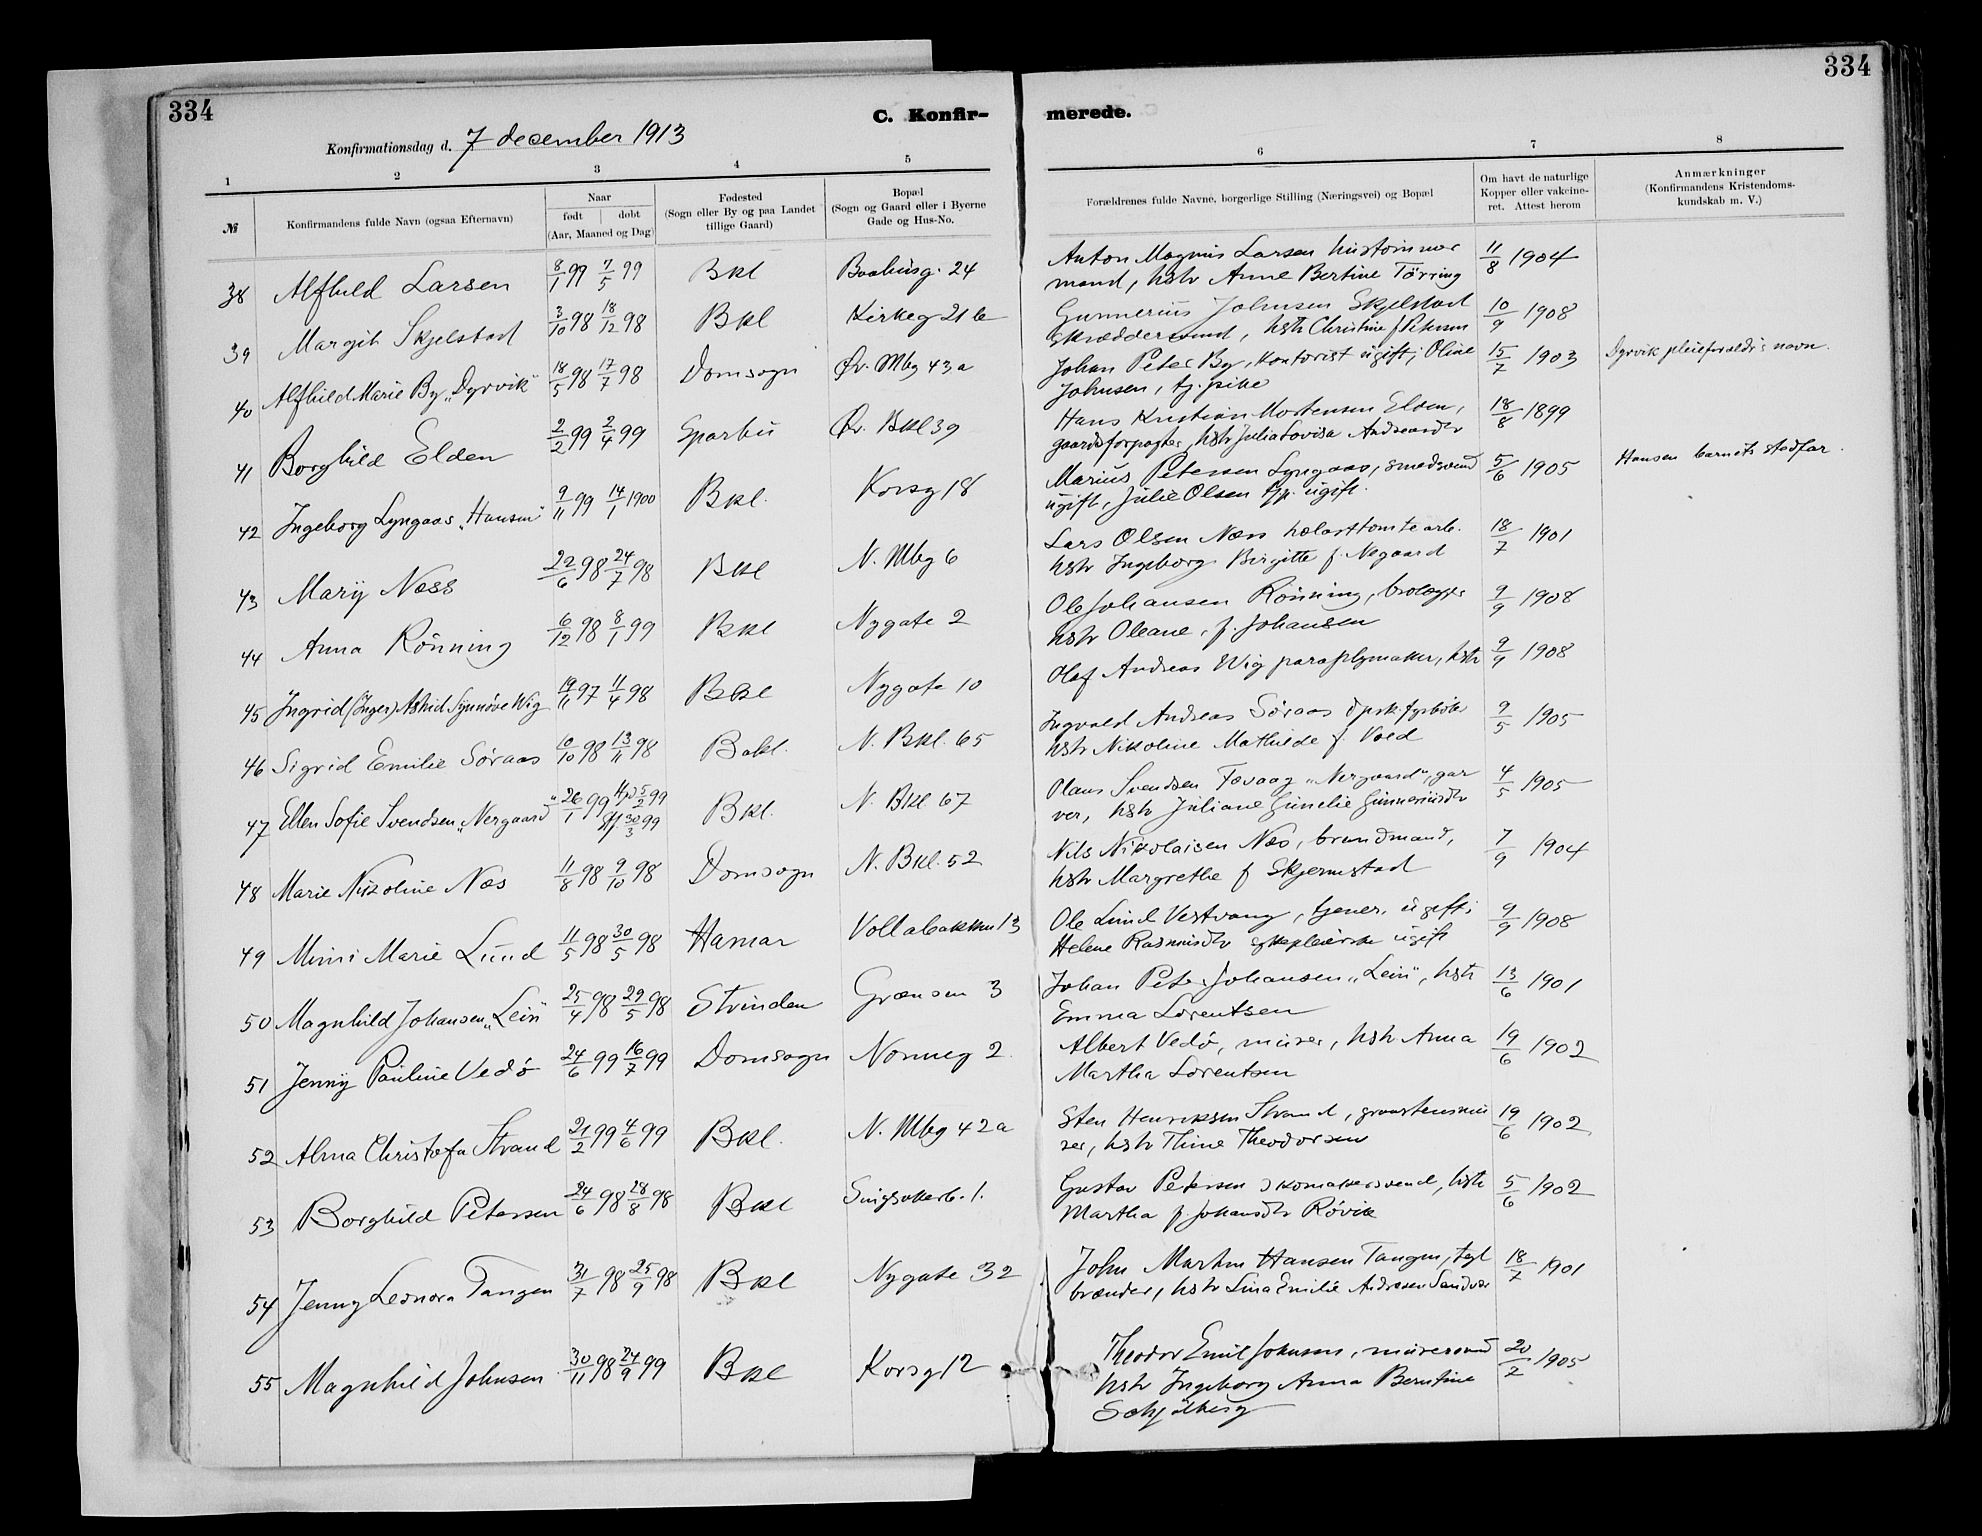 334
334
C. Konfir-
merede.
Konfirmationsdag d. 7 december 1913
1 2 3 4 5 6 7 8
№
Konfirmandens fulde Navn (ogsaa Efternavn)
Naar
født døbt
(Aar, Maaned og Dag)
Fødested
(Sogn eller By og paa Landet
tillige Gaard)
Bopæl
(Sogn og Gaard eller i Byerne
Gade og Hus-No.
Forældrenes fulde Navne, borgerlige Stilling (Næringsvei) og Bopæl
Om havt de naturlige
Kopper eller vakcine-
ret. Attest herom
Anmærkninger
(Konfirmandens Kristendoms-
kundskab m. V.)
38 Alfhild Larsen 8/1 99 7/5 99 Bkl Baahusg. 24 Anton Magnus Larsen hustømmer 11/8 1904
mand, hstr Anne Bertine Tørring
39 Margit Skjelstad 3/10 98 18/12 98 Bkl Kirkeg 21 b Gunnerius Johnsen Skjelstad 10/9 1908
skræddersvend, hstr Christine f. Petersen
40 Alfhild Marie By "Dyrvik" 18/5 98 17/7 98 Domsogn Øv. Mbg 43a Johan Peter By, kontorist ugift; Oline 15/7 1903 Dyrvik pleieforældr's navn.
Johnsen, tj. pike
41 Borghild Elden 2/2 99 2/4 99 Sparbu Øv. Bkl 39 Hans Kristian Mortensen Elden, 18/8 1899
gaardsforpagter, hstr Julia Lovisa Andreasdtr
42 Ingeborg Lyngaas "Hansen" 9/11 99 14/1 1900 Bkl. Korsg 18 Marius Petersen Lyngaas, smedsvend 5/6 1905 Hansen barnets stedfar.
ugift, Julie Olsen tjp. ugift.
43 Mary Næss 22/6 98 24/7 98 Bkl N. Mbg 6 Lars Olsen Næss arb. 18/7 1901
hstr Ingeborg Birgitte f. Negaard
44 Anna Rönning 6/12 98 8/1 99 Bkl Nygate 2 Ole Johansen Rönning, brolægger 9/9 1908
hstr Oleane, f. Johansen
45 Ingrid (Inger) Astrid Synnøve Wig 19/11 97 11/4 98 Bkl Nygate 10 Olaf Andreas Wig paraplymaker, hstr 9/9 1908
46 Sigrid Emilie Søraas 10/10 98 13/11 98 Bakl. N. Bkl. 65 Ingvald Andreas Søraas 9/5 1905
hstr Nikoline Mathilde f Vold
47 Ellen Sofie Svendsen "Nergaard" 26/1 99 Hjd 5/2 99 Bkl. N. Bkl 67 Olaus Svendsen Tevaag "Nergaard", gar 4/5 1905
Stf. 30/3 99 ver, hstr Juliane Gunelie Gunneriusdtr
48 Marie Nikoline Næs 11/8 98 9/10 98 Domsogn N. Bkl. 52 Nils Nikolaisen Næs, brandmand, 7/9 1904
hstr Margrethe f Skjermstad
49 Mimi Marie Lund 11/5 98 30/5 98 Hamar Vollabakken 13 Ole Lund Vestvang, tjener, ugift; 9/9 1908
Helene Rasmusdtr sykepleierske ugift
50 Magnhild Johansen "Lein" 25/4 98 29/5 98 Strinden Grænsen 3 Johan Peter Johansen "Lein", hstr 13/6 1901
Emma Lorentsen
51 Jenny Pauline Vedø 24/6 99 16/7 99 Domsogn Nonneg 2. Albert Vedø, murer, hstr Anna 19/6 1902
Martha Lorentsen
52 Alma Christofa Strand 21/2 99 4/6 99 Bkl. N. Mbg 42a Sten Henriksen Strand, graastensmu 19/6 1902
rer, hstr Thine Theodorsen
53 Borghild Petersen 24/6 98 28/8 98 Bkl Singsakerb. 1. Gustav Petersen skomakersvend, hstr 5/6 1902
Martha f. Johansdtr Røvik
54 Jenny Leonora Tangen 31/7 98 25/9 98 Bkl Nygate 32 John Martin Hansen Tangen, tegl 18/7 1901
brænder, hstr Lina Emilie Andresen Sandvær
55 Magnhild Johnsen 30/11 98 24/9 99 Bkl Korsg 12 Theodor Emil Johnsen, murersvend 20/2 1905
hstr Ingeborg Anna Berntine
Schjølberg